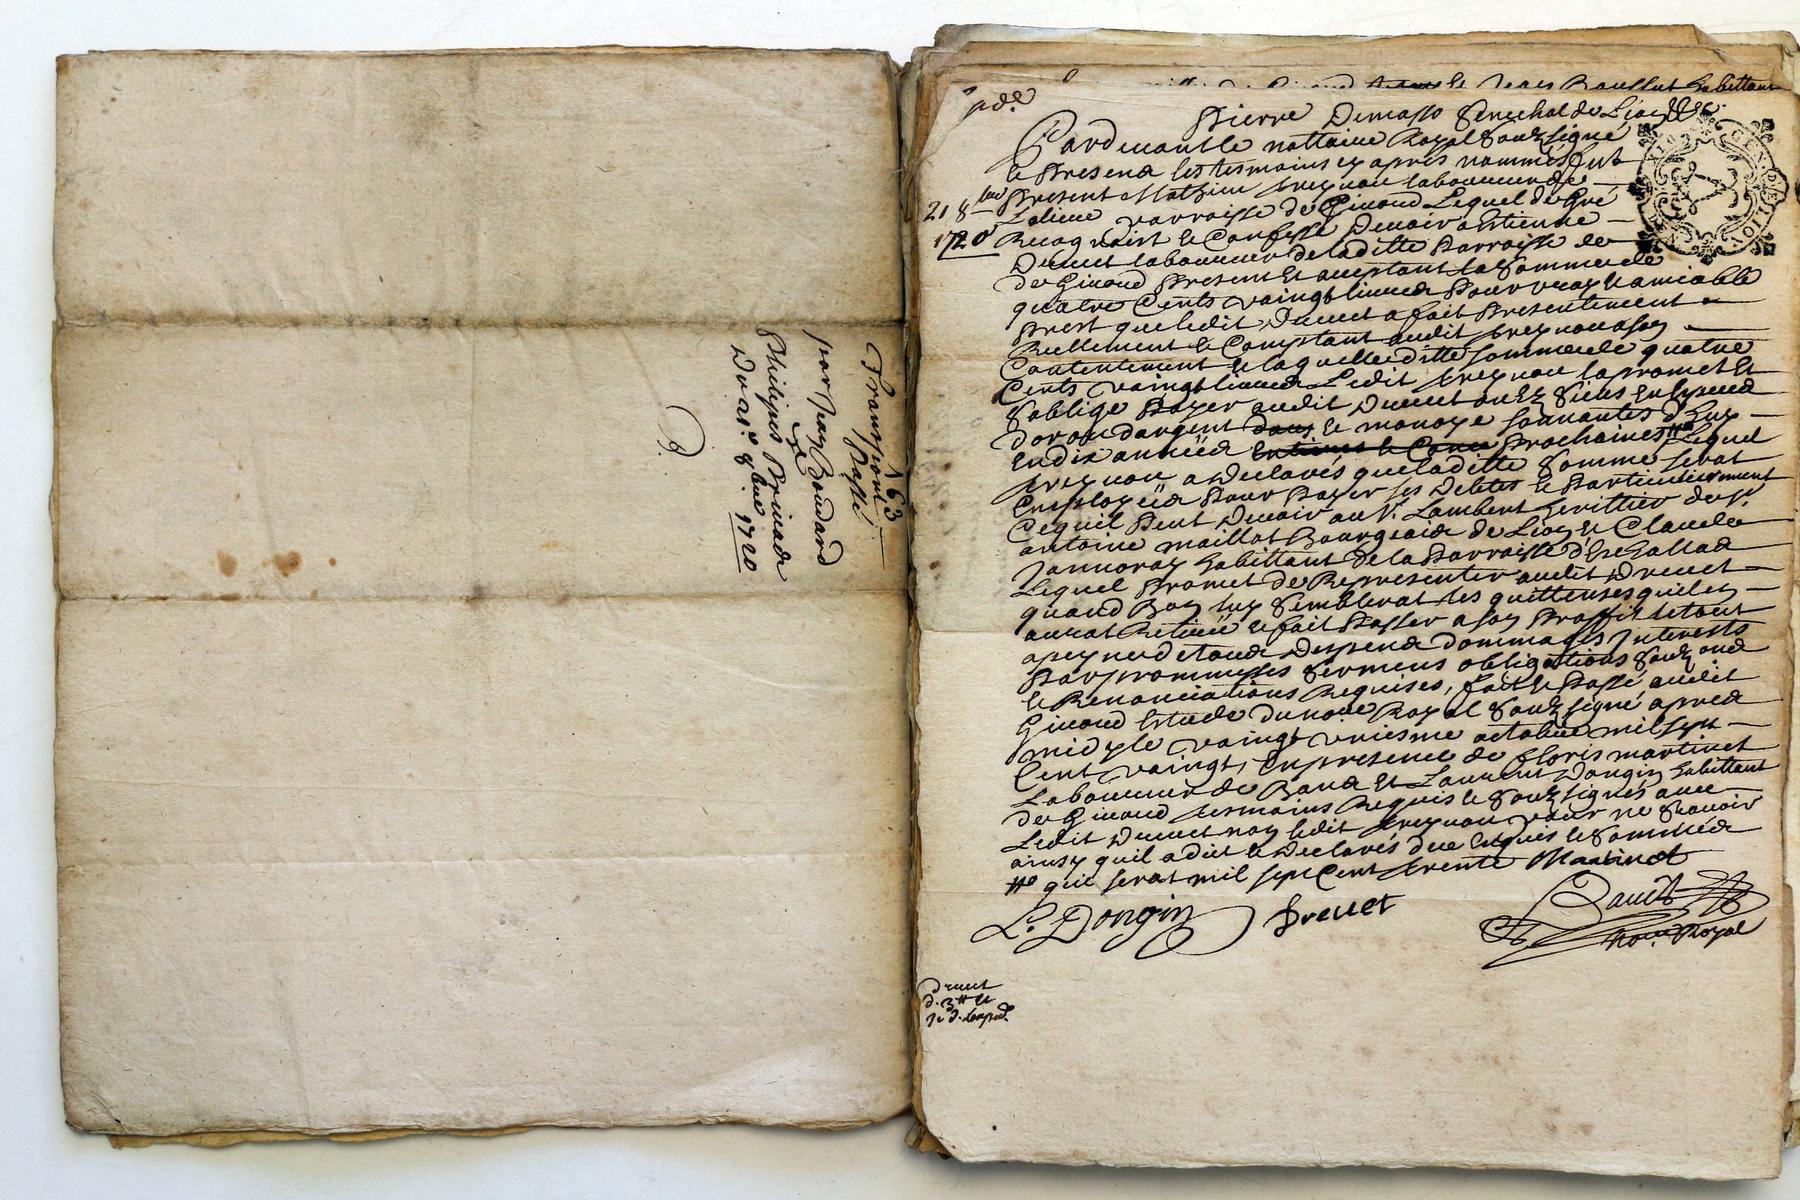 163
Transport
passé
par Jean Boudard
a
Philippes Brinade
Du 21e 8bre 1720
habittant
pde
Pierre Demasso Senechal de Lion
Pardevant le nottaire Royal Soubsigné
le Present les tesmoins cy apres nommés fut
21 8bre
1720
Present Mathieu laboureur de
parroisse de Givord Lequel de Gré
Recognoist le Confesse Devoir a Estienne
Drevet laboureur de laditte Parroisse de
de Givord Present et acceptant la Somme de
quatre Cents vaingt livres Pour vray et amiable
Prest que ledit Drevet a fait Presentement
Reellement le Comptant audit a son
Contentement le laquelle ditte somme de quatre
Cents vaingt livres Ledit la promet et
S'oblige Payer audit Drevet ou ez Siens en Espece
d'or ou d'argent le monoye sonnantes d'huy
En dix années prochaines Lequel
a Declaré que laditte Somme serat
Employée Pour Payer ses Debtes le Particulierement
Ce quil Peut Devoir au Sr. Lambert heritier de Sr
antoine maillot Bourgeois de Lion et Claude
Jannoray habittant de la Parroisse
Lequel Promet de Representer audit Drevet
quand Bon luy Semblerat les quittenses quil en
aurat Retiréé le fait Passer a son Proffit le tout
a peyne de tous Despens dommages Interests
Par prommesses sermens obligations Soubz
le Renonciations Requises, fait le Passé audit
Givord Estude du nore Royal Soubsigné apres
midy le vaingt uniesme octobre mil sept
Cent vaingt, En presence de floris martinet
Laboureur de Bans Et Laurent Dongin habittant
de Givord tesmoins Requis le Soubsignés avec
Ledit Drevet non ledit pour ne Scavoir
ainsy quil a dit le Declarés due Enquis le Sommés
qui serat mil sept Cent trente Martinet
L. Dongin Drevet
nore Royal
drevet